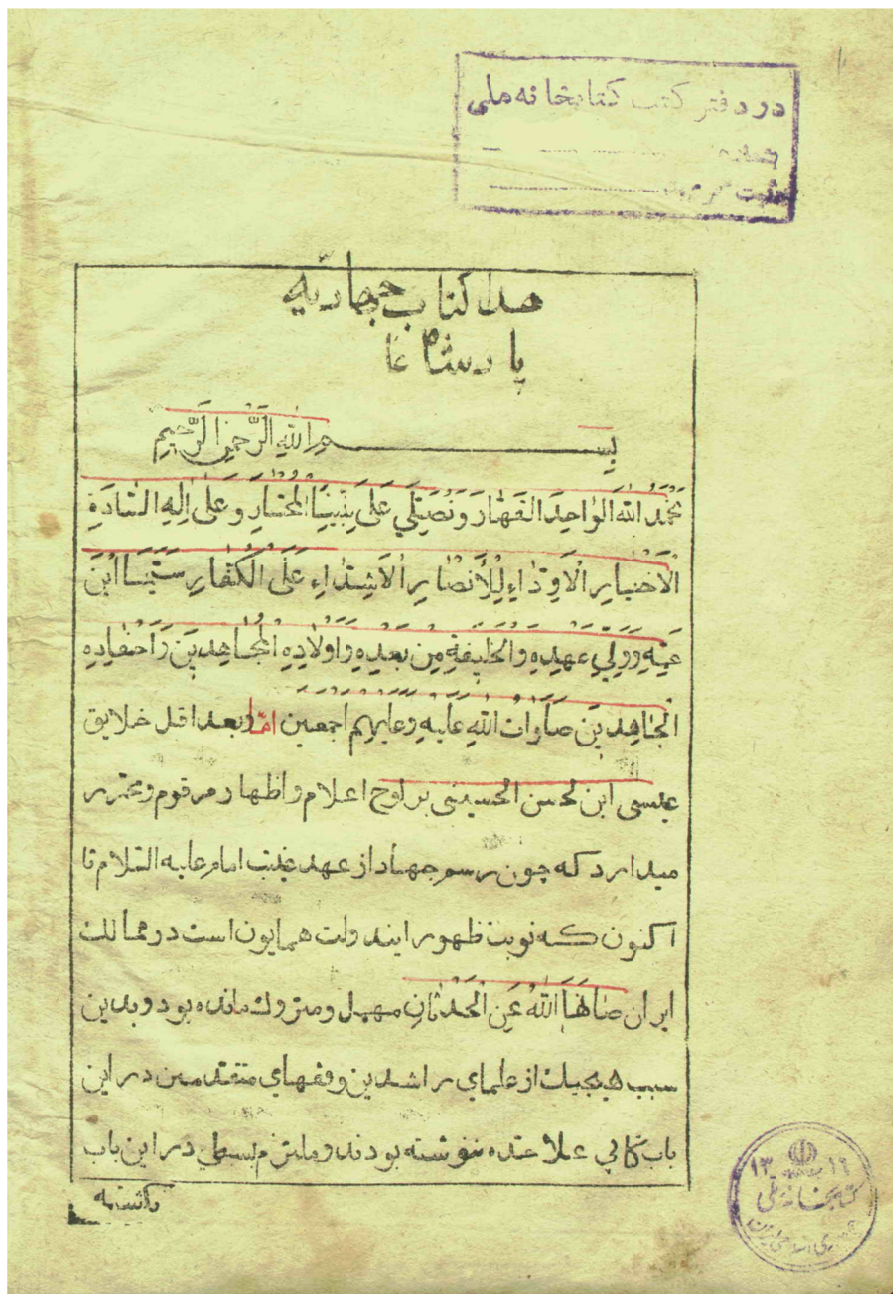 در دفتر کتب کتابخانه ملی
هذا کتاب جهادیه
بِسْمِ اللهِ الرَّحْمٰنِ الرَّحیمِ
نَحْمَدُ اللهَ الْوٰاحِدَ الْقَهّٰارَ وَنُصَلّي عَلىٰ نَبِيِّنَا الْمُخْتٰارِ وَعَلىٰ اٰلِهِ السّٰادَةِ
الْاَخْيٰارِ الْاَوِدّٰاءِ لِلْأَنْصٰارِ الْاَشِدّٰاءِ عَلَى الْكُفّٰارِ سِيَّمَا ابْنَ
عَمِّهِ وَوَلِيِّ عَهْدِهِ وَالْخَليفَةِ مِنْ بَعْدِهِ وَاَوْلٰادِهِ الْمُجٰاهِدينَ وَاَحْفٰادِهِ
الْجٰاهِدينَ صَلَوٰاتُ اللهِ عَلَيْهِ وَعَلَيْهِمْ اَجْمَعين امّا وبعد اقل خلایق
عیسی ابن الحسن الحسینی بر لوح اعلام و اظهار مرقوم و محرر
میدارد که چون رسم جهاد از عهد غیبت امام علیه السّلام تا
اکنون که نوبت ظهور ایندولت همایون است در ممالک
ایران صٰانَهَا اللهُ عَنِ الْحَدَثٰانِ مهمل و متروک مانده بود و بدین
سبب هیچیک از علمای راشدین و فقهای متقدمین در این
باب کتابی علاحده ننوشته بودند و ملتزم بسطی در این باب
نگشته
۱۳۱۶
کتابخانه ملی
جمهوری اسلامی ایران